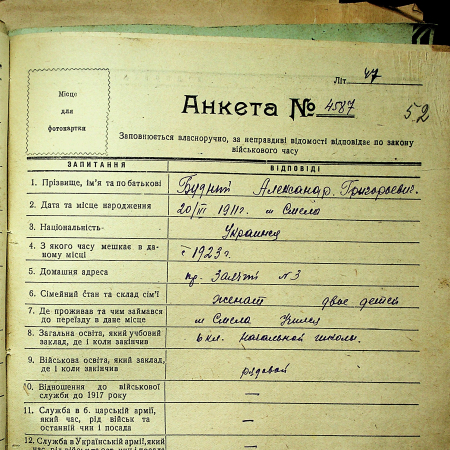 Літ. 47
Місце
для
фотокартки
Анкета № 4587
52
Заповнюється власноручно, за неправдиві відомості відповідає по закону
військового часу
ЗАПИТАННЯ ВІДПОВІДІ
1. Прізвище, ім'я та по батькові Александр Григорьевич.
2. Дата та місце народження 20/III 1911 г. м Смела
3. Національність Украинец
4. З якого часу мешкає в даному місці с 1923 г.
5. Домашня адреса № 3
6. Сімейний стан та склад сім'ї женат двое детей
7. Де проживав та чим займався до переїзду в дане місце м Смела Учился
8. Загальна освіта, який учбовий заклад, де і коли закінчив 6 кл. начальной школы.
9. Військова освіта, який заклад, де і коли закінчив рядовой
10. Відношення до військової служби до 1917 року —
11. Служба в б. царській армії, який час, рід військ та останній чин і посада —
12. Служба в Українській армії, який
час, рід військ та ост. чин і посада